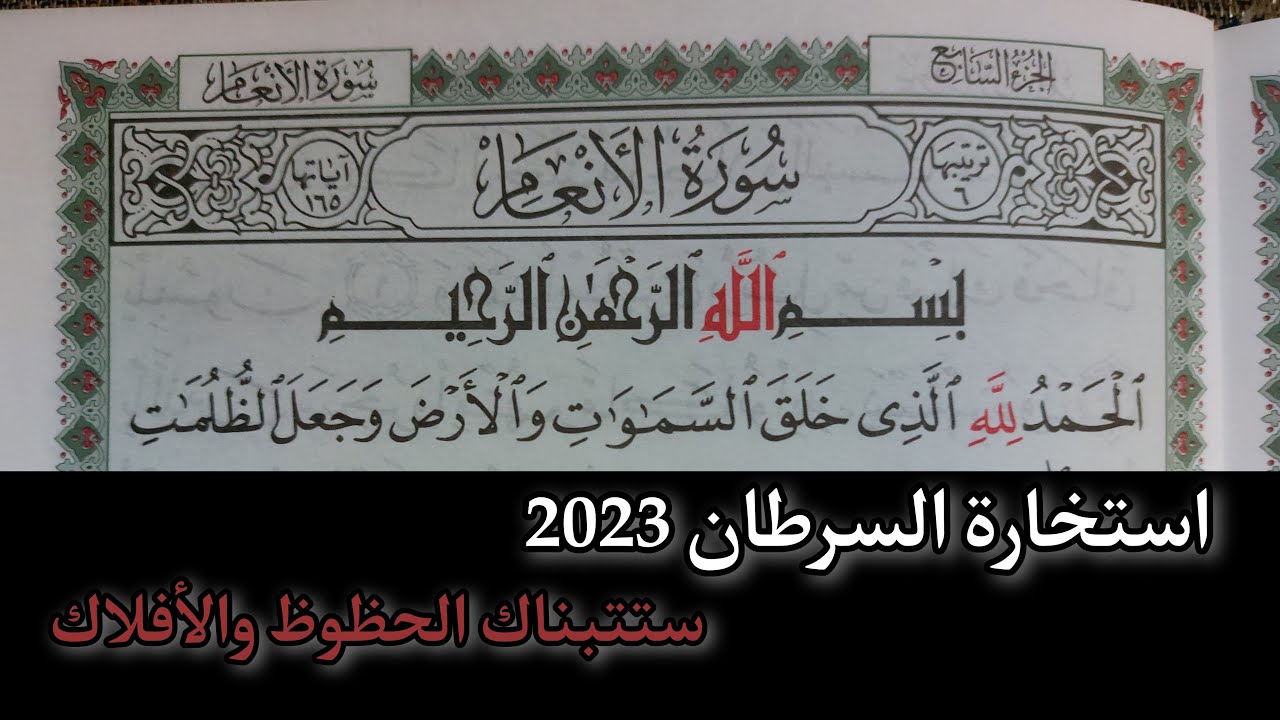 الجزء السابع
سورة الأنعام
ترتيبها ٦
سُورَةُ الأَنْعَامِ
آياتها ١٦٥
بِسْمِ ٱللَّهِ ٱلرَّحْمَٰنِ ٱلرَّحِيمِ
ٱلْحَمْدُ لِلَّهِ ٱلَّذِى خَلَقَ ٱلسَّمَٰوَٰتِ وَٱلْأَرْضَ وَجَعَلَ ٱلظُّلُمَٰتِ
استخارة السرطان 2023
ستتبناك الحظوظ والأفلاك